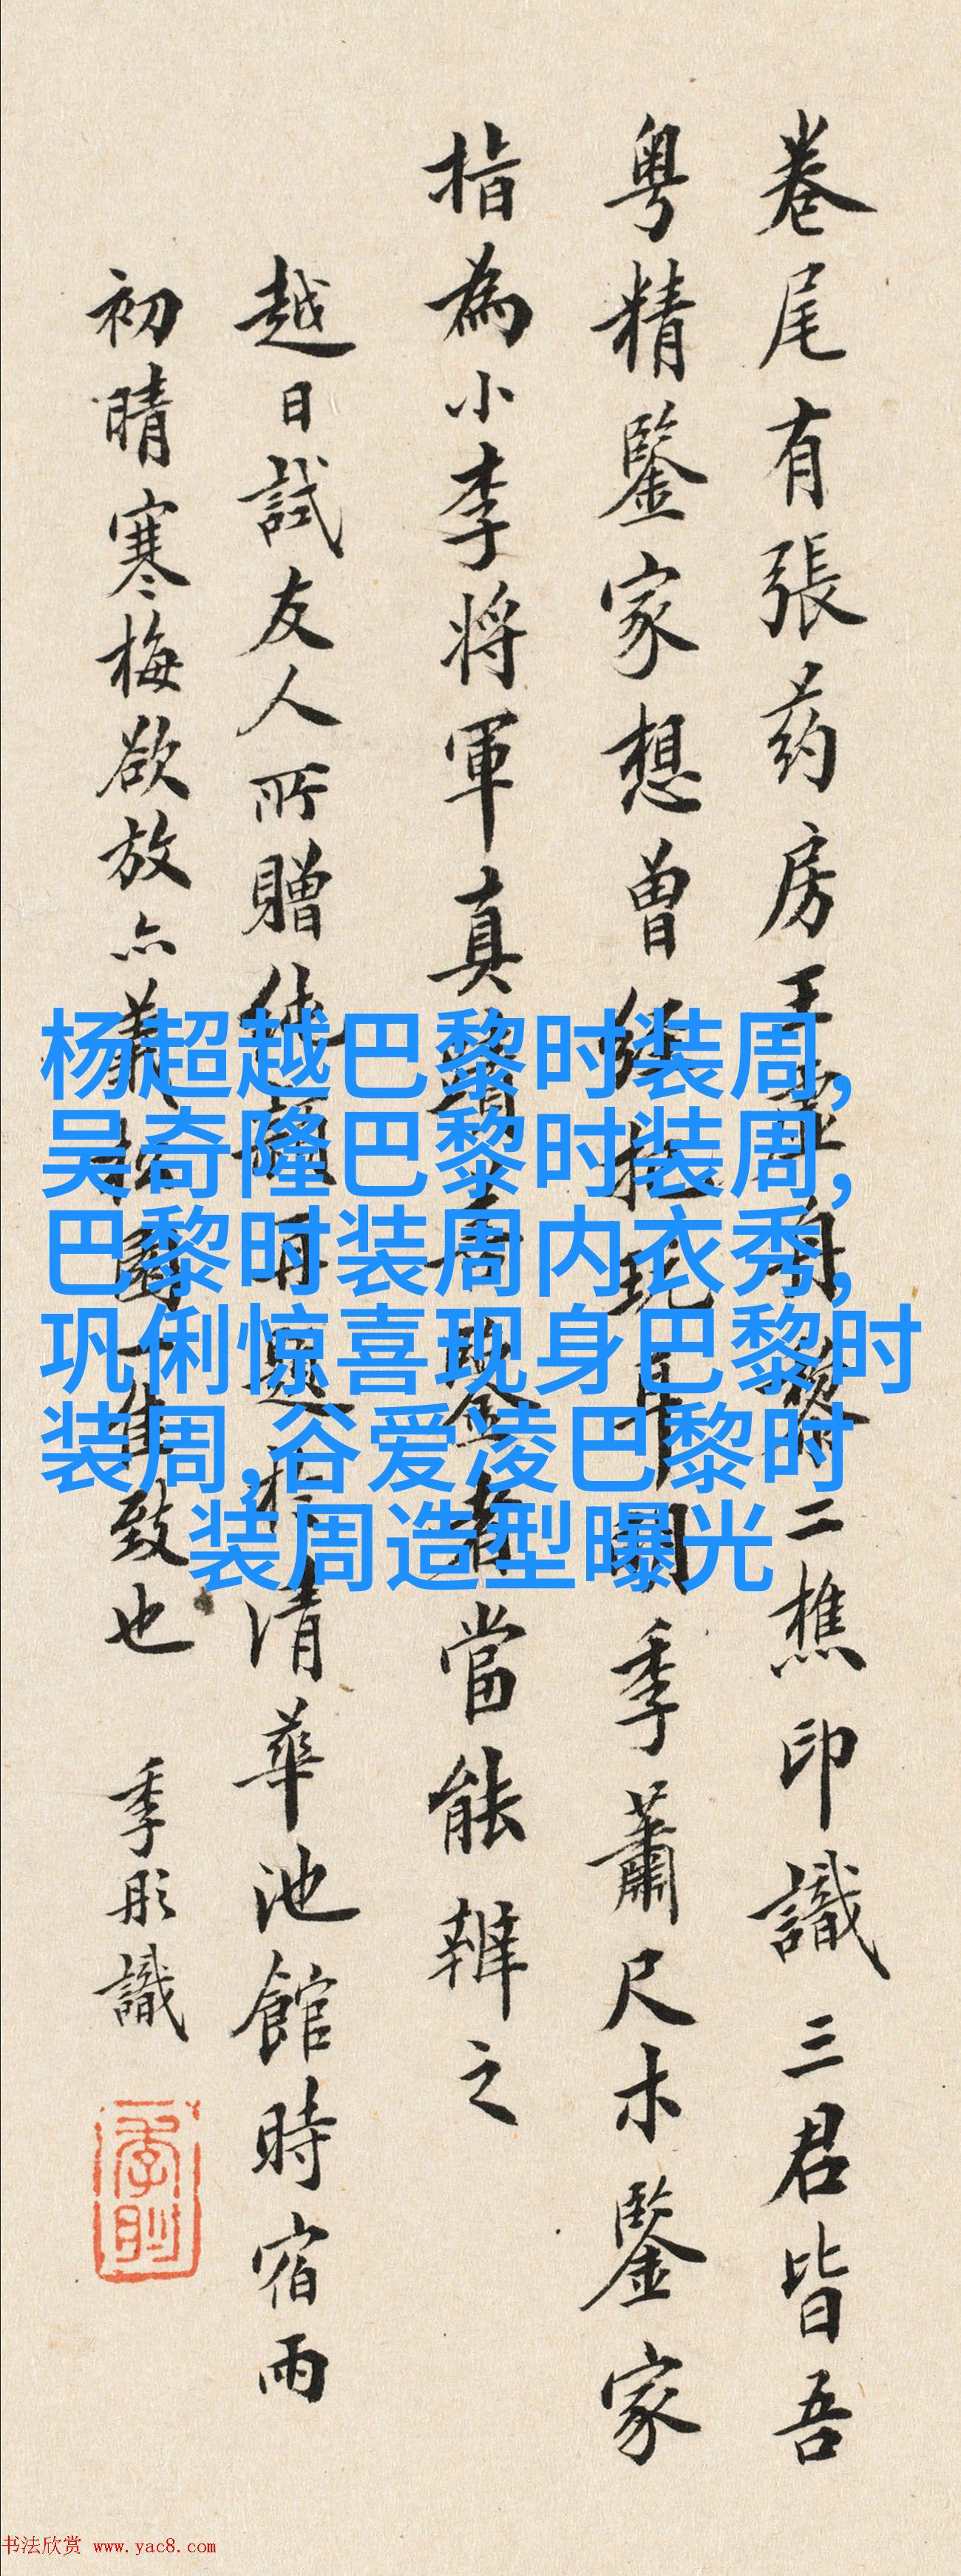 卷尾有張葯房王
二樵印識三君皆吾
粤精鑒家想曾
季蕭尺木鑒家
指為小李將軍真
當能辨之
越日試友人所贈
清華池館時宿雨
初晴寒梅欲放亦
致也 季彤識
杨超越巴黎时装周,
吴奇隆巴黎时装周,
巴黎时装周内衣秀,
巩俐惊喜现身巴黎时
装周,谷爱凌巴黎时
装周造型曝光
书法欣赏 www.yac8.com